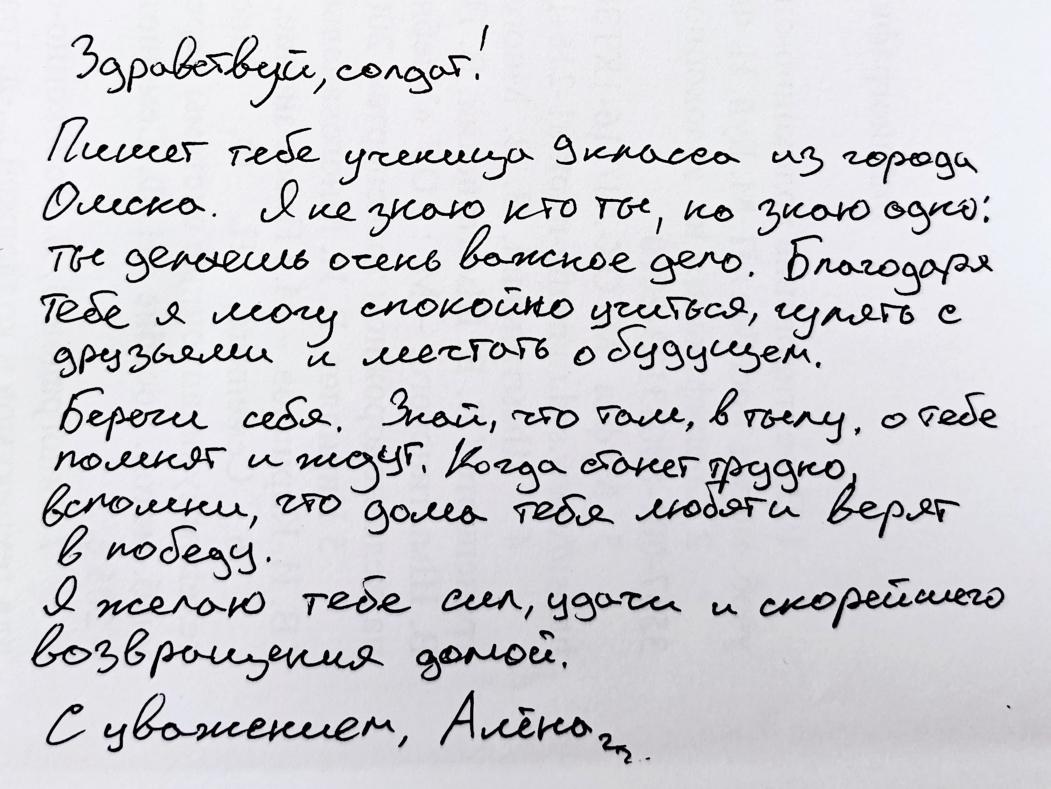 Здравствуй, солдат!
Пишет тебе ученица 9 класса из города
Омска. Я не знаю кто ты, но знаю одно:
ты делаешь очень важное дело. Благодаря
тебе я могу спокойно учиться, гулять с
друзьями и мечтать о будущем.
Береги себя. Знай, что там, в тылу, о тебе
помнят и ждут. Когда станет трудно,
вспомни, что дома тебя любят и верят
в победу.
Я желаю тебе сил, удачи и скорейшего
возвращения домой.
С уважением, Алёна